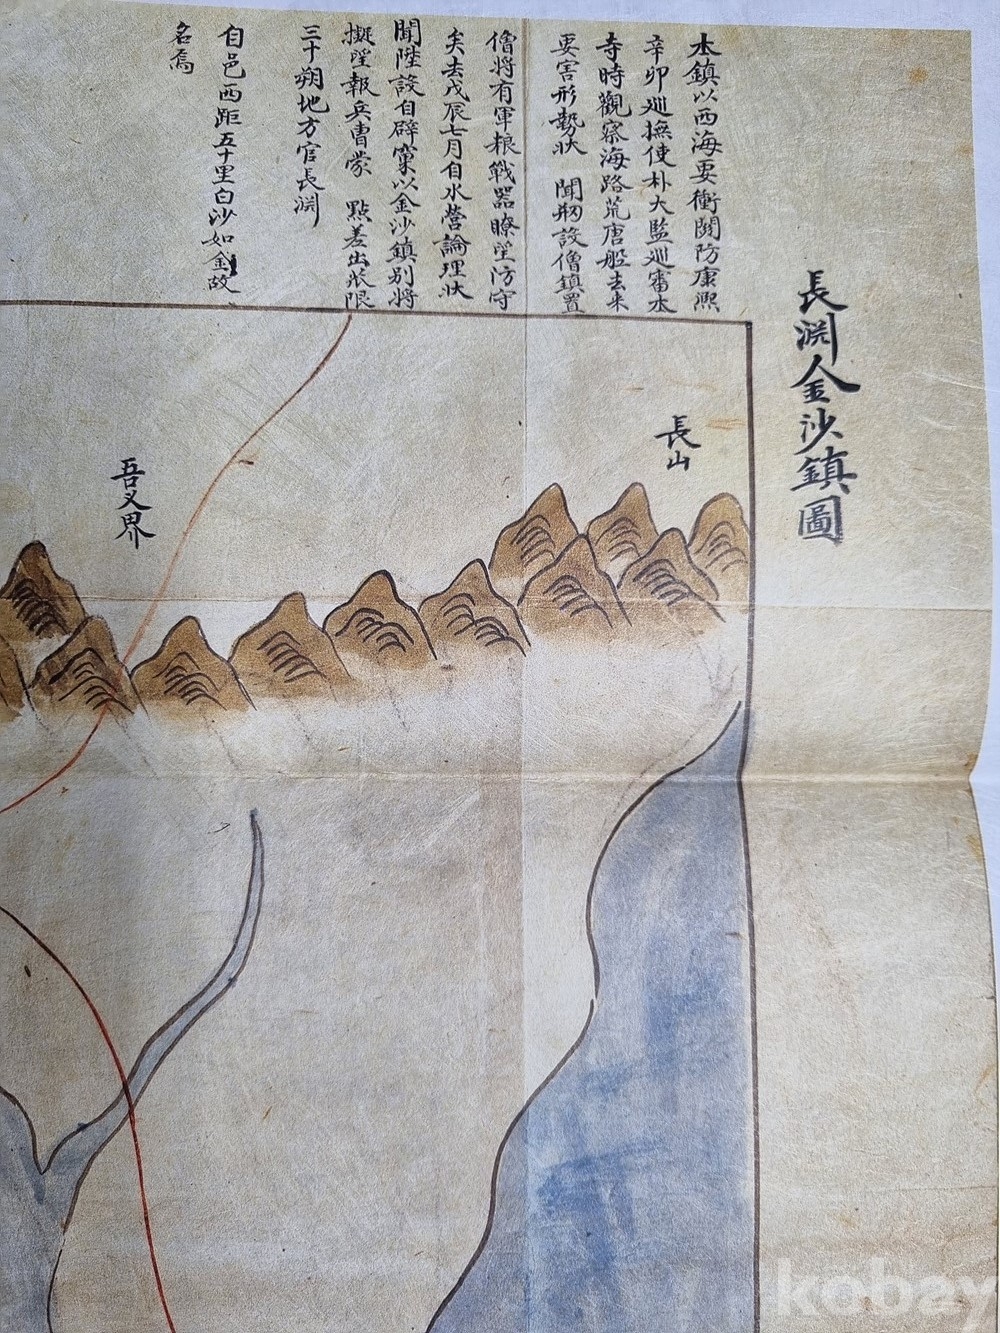 長淵金沙鎮圖
本鎮以西海要衝關防康熙
辛卯巡撫使朴大監巡審本
寺時觀察海路荒唐船去来
要害形勢狀 聞刱設僧鎮置
僧將有軍粮戰器瞭望防守
矣去戊辰七月自水營論理狀
聞陞設自辟窠以金沙鎮別將
擬望報兵曹蒙 點差出狀限
三十朔地方官長淵
自邑西距五十里白沙如金故
名焉
長山
吾乂界
kobay